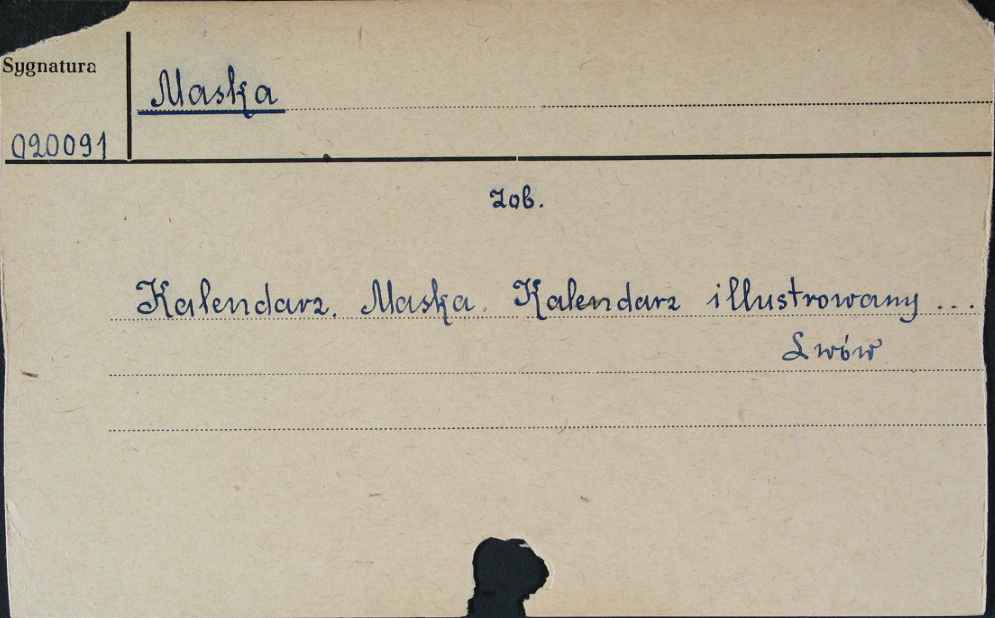 Sygnatura
Maska
020091
zob.
Kalendarz. Maska. Kalendarz illustrowany ...
Lwów